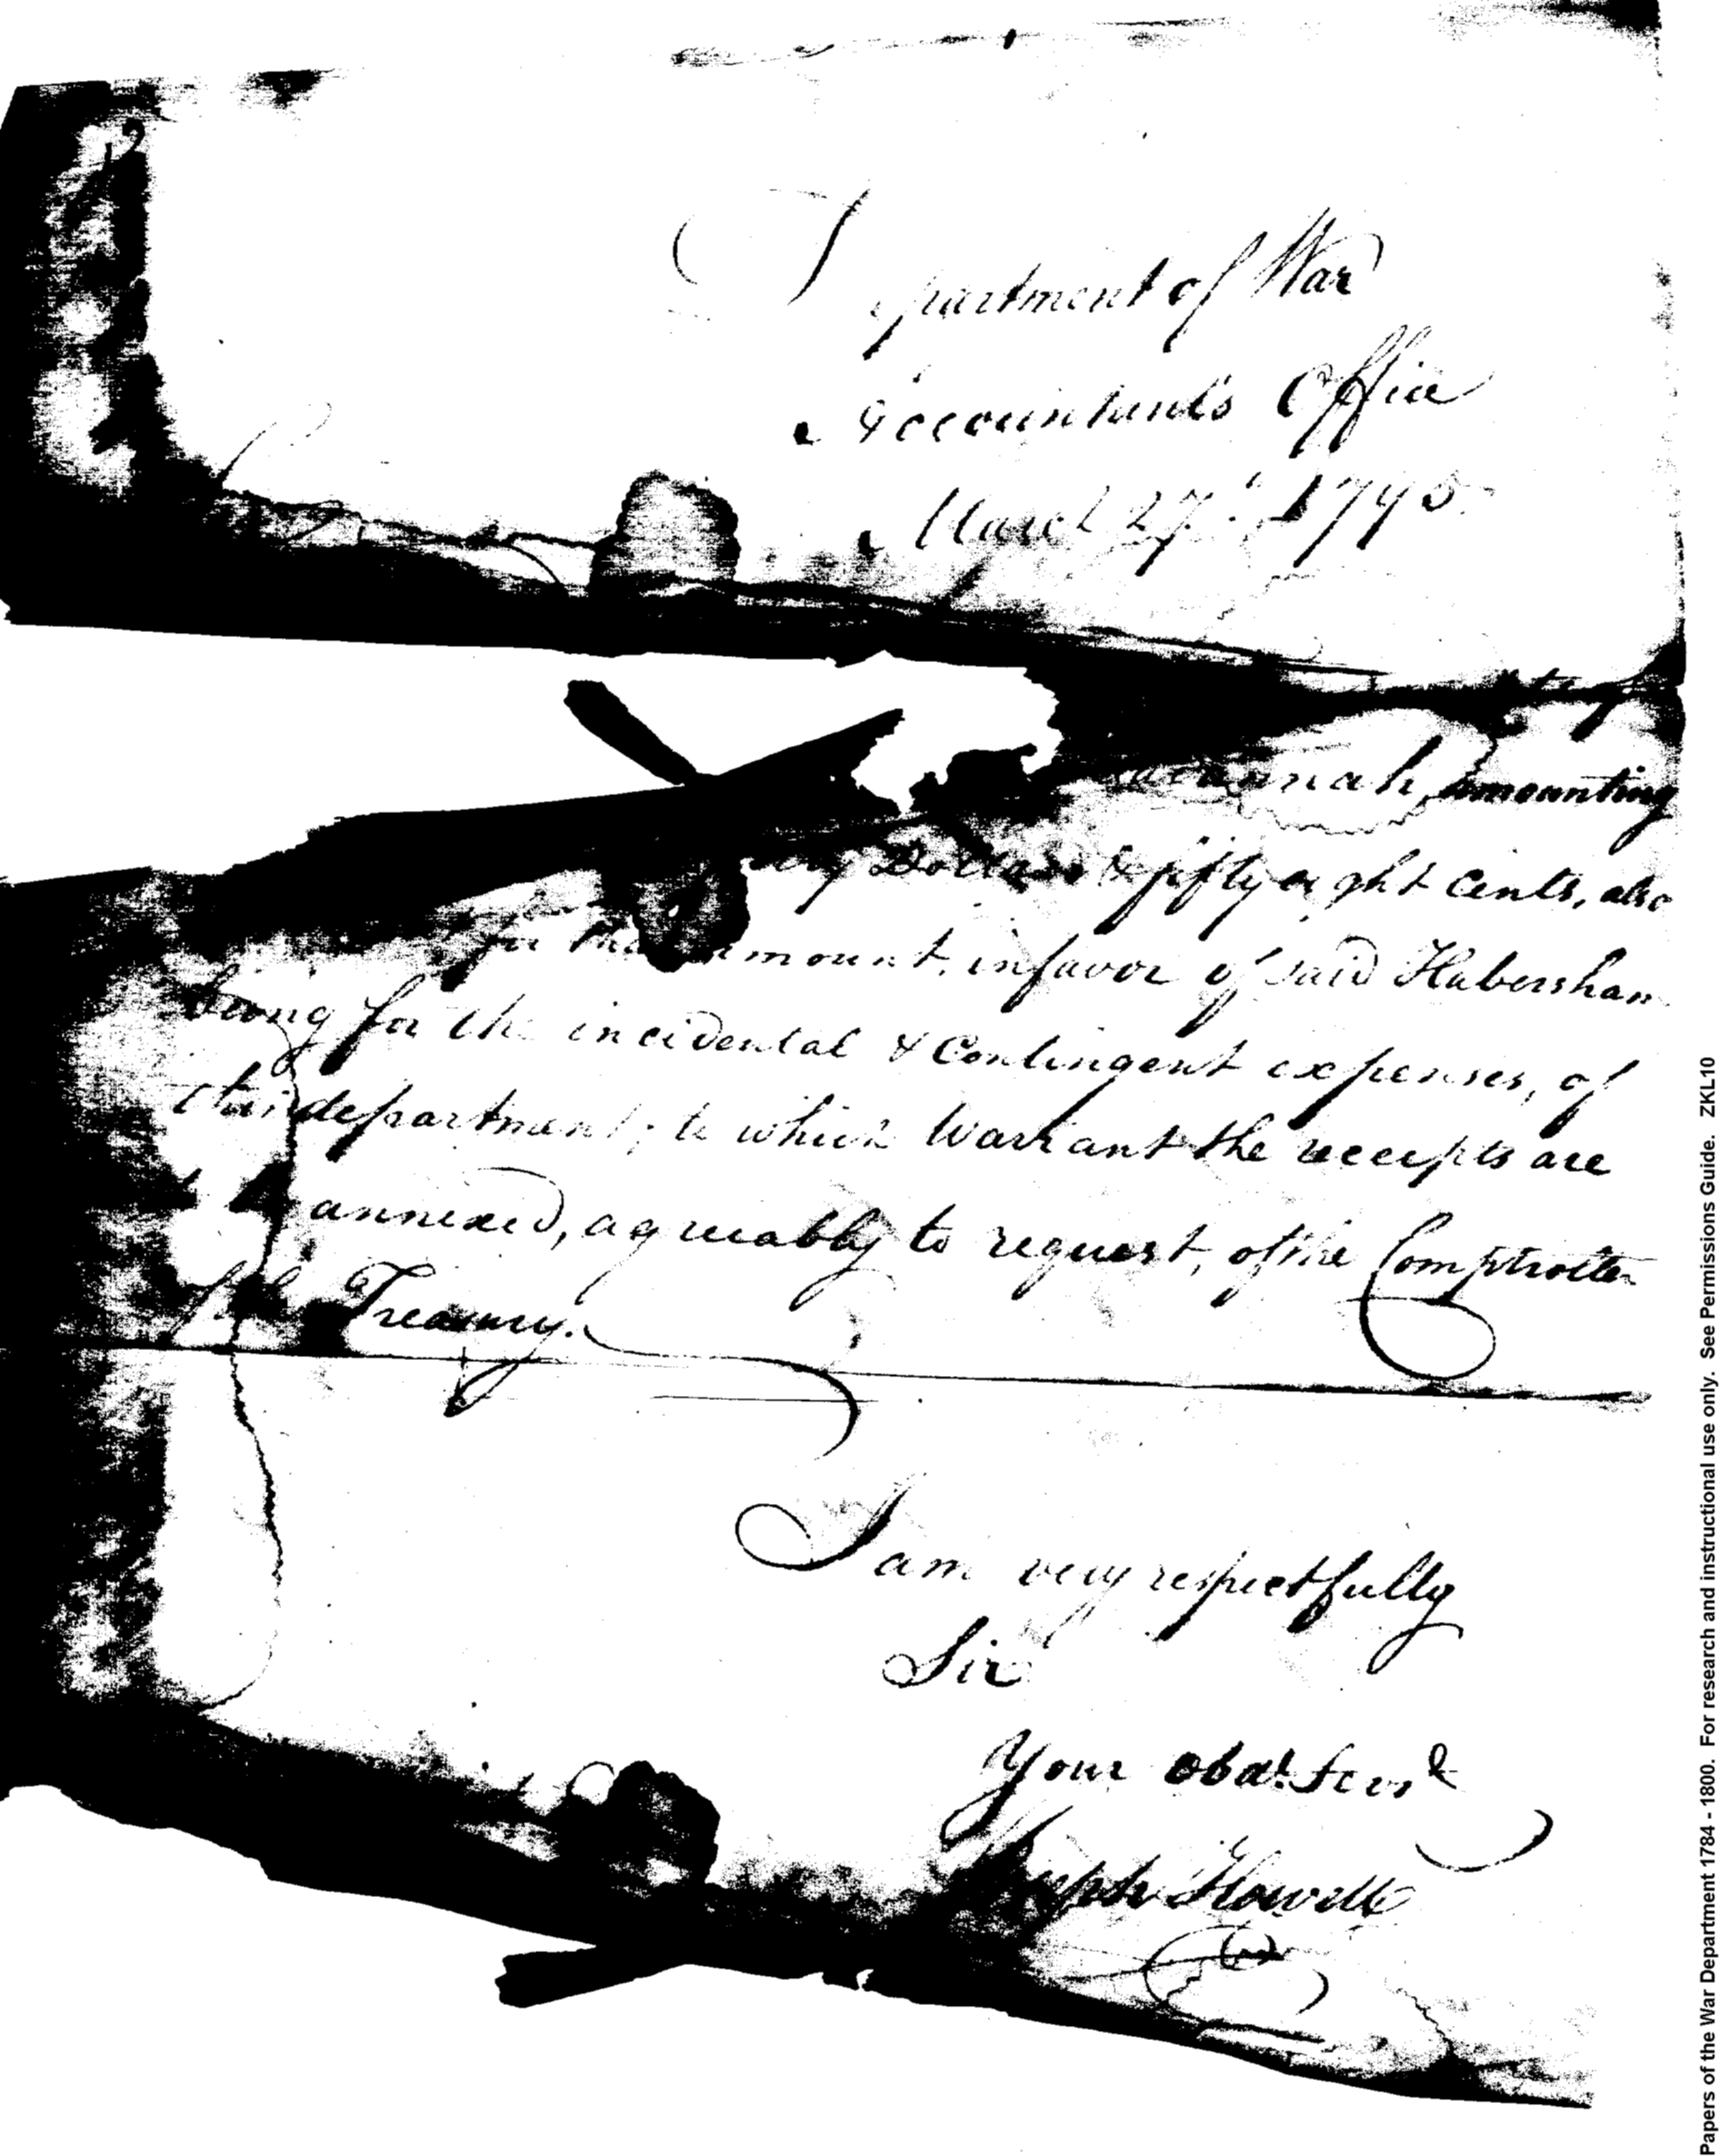 Department of War
Accountants Office
March 27th 1795
Savannah, amounting
Dollars & fifty eight Cents, also
for the amount, in favor of said Habersham
being for the incidental & Contingent expenses, of
this department; to which Warrant the receipts are
annexed, agreeably to request, of the Comptroller
of the Treasury.
I am very respectfully
Sir
Your obdt. Servt
Joseph Howell
Papers of the War Department 1784 - 1800. For research and instructional use only. See Permissions Guide. ZKL10